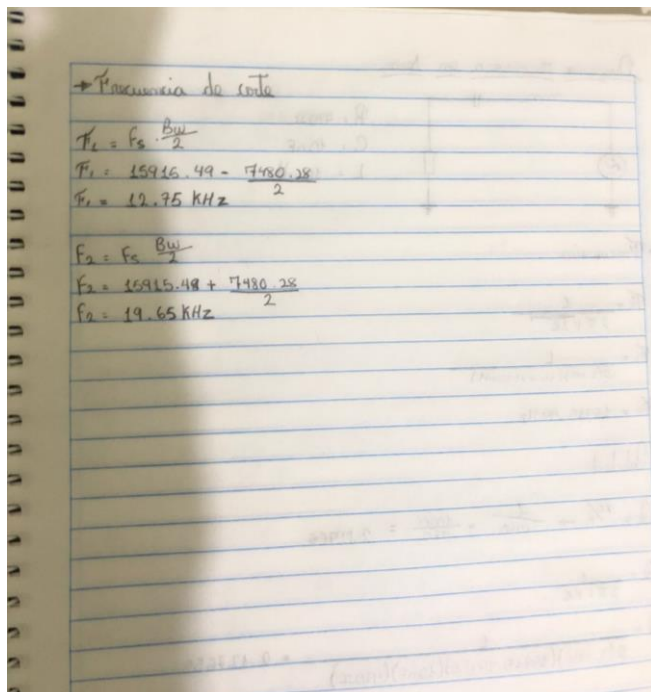 → Frecuencia de corte
F₁ = Fs . Bw/2
F₁ = 15915.49 - 7480.28/2
F₁ = 12.75 KHz
F₂ = Fs Bw/2
F₂ = 15915.48 + 7480.28/2
F₂ = 19.65 KHz